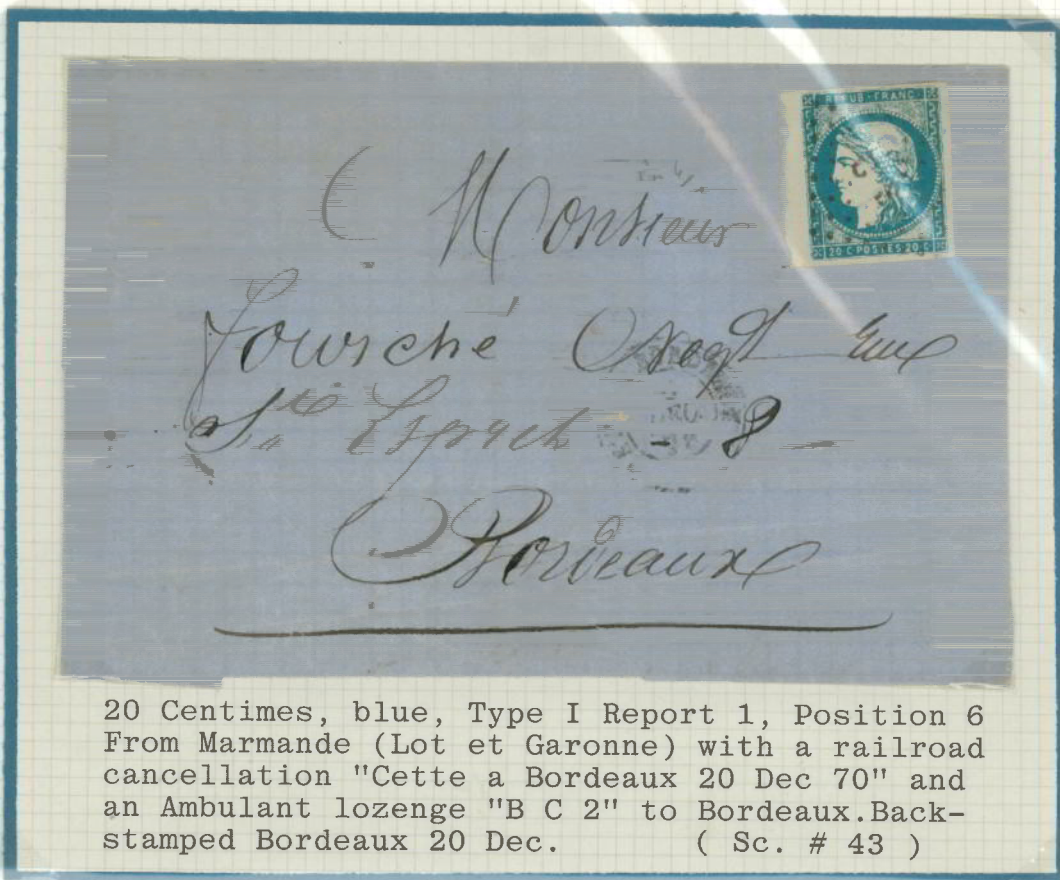 REPUB·FRANC
20 C POSTES 20 C
Monsieur
Fourché
Ste
8
Bordeaux
20 Centimes, blue, Type I Report 1, Position 6
From Marmande (Lot et Garonne) with a railroad
cancellation "Cette a Bordeaux 20 Dec 70" and
an Ambulant lozenge "B C 2" to Bordeaux.Back-
stamped Bordeaux 20 Dec. ( Sc. # 43 )